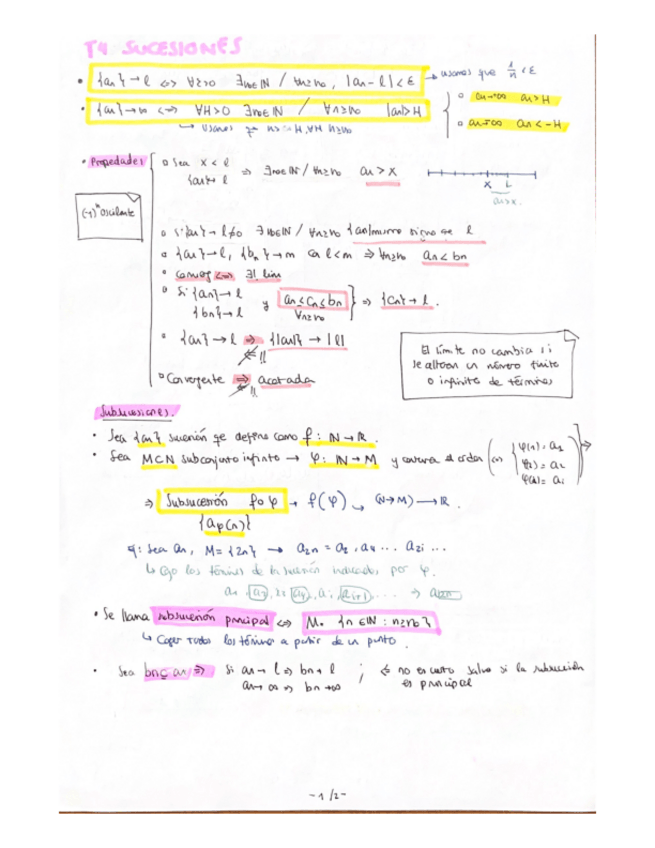 T4 SUCESIONES
• {an} → l ⇔ ∀ε>0 ∃n₀∈ℕ / ∀n≥n₀, |an-l|<ε → usamos que 1/n < ε
• {an} → ∞ ⇔ ∀H>0 ∃n₀∈ℕ / ∀n≥n₀ |an|>H
o an→+∞ an>H
o an→-∞ an<-H
↪ Usamos que n>H, ∀H n≥n₀
• Propiedades
o Sea x<l
{an}→l ⇒ ∃n₀∈ℕ / ∀n≥n₀ an > x
x l
an>x.
(-1)ⁿ oscilante
o Si {an}→l≠0 ∃n₀∈ℕ / ∀n≥n₀ {an} mismo signo que l
o {an}→l, {bn}→m con l<m ⇒ ∀n≥n₀ an<bn
o Converg ⇔ ∃! lim
o Si {an}→l
{bn}→l y an≤cn≤bn ∀n≥n₀ ⇒ {cn}→l.
o {an}→l ⇒ {|an|}→|l|
!!
o Convergente ⇒ acotada
!!
El límite no cambia si
se alteran un número finito
o infinito de términos
Subsucesiones.
• Sea {an} sucesión que se define como f: ℕ→ℝ.
• Sea M⊂ℕ subconjunto infinito → φ: ℕ→M y conserva el orden (⇔ φ(1)=a₁
φ(2)=a₂
φ(i)=ai
⇒ Subsucesión f∘φ → f(φ) ↪ (ℕ→M)→ℝ.
{aφ(n)}
ej: Sea an, M={2n} → a2n = a2, a4 ... a2i ...
↪ Cojo los términos de la sucesión indicados por φ.
a₁, a₂, a₃, a₄, ai, ai+1, ... ⇒ a2n
• Se llama subsucesión principal ⇔ M = {n∈ℕ: n≥n₀}
↪ Coger todos los términos a partir de un punto.
• Sea bn⊆an ⇒ Si an→l ⇒ bn→l ; ⇍ no es cierto salvo si la subsucesión
an→∞ ⇒ bn→∞ es principal
-1/2-